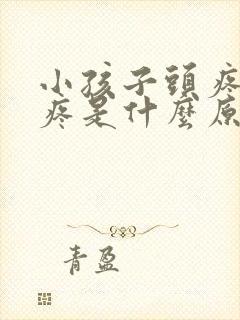 小孩子頭疼
疼是什麼原
青盈